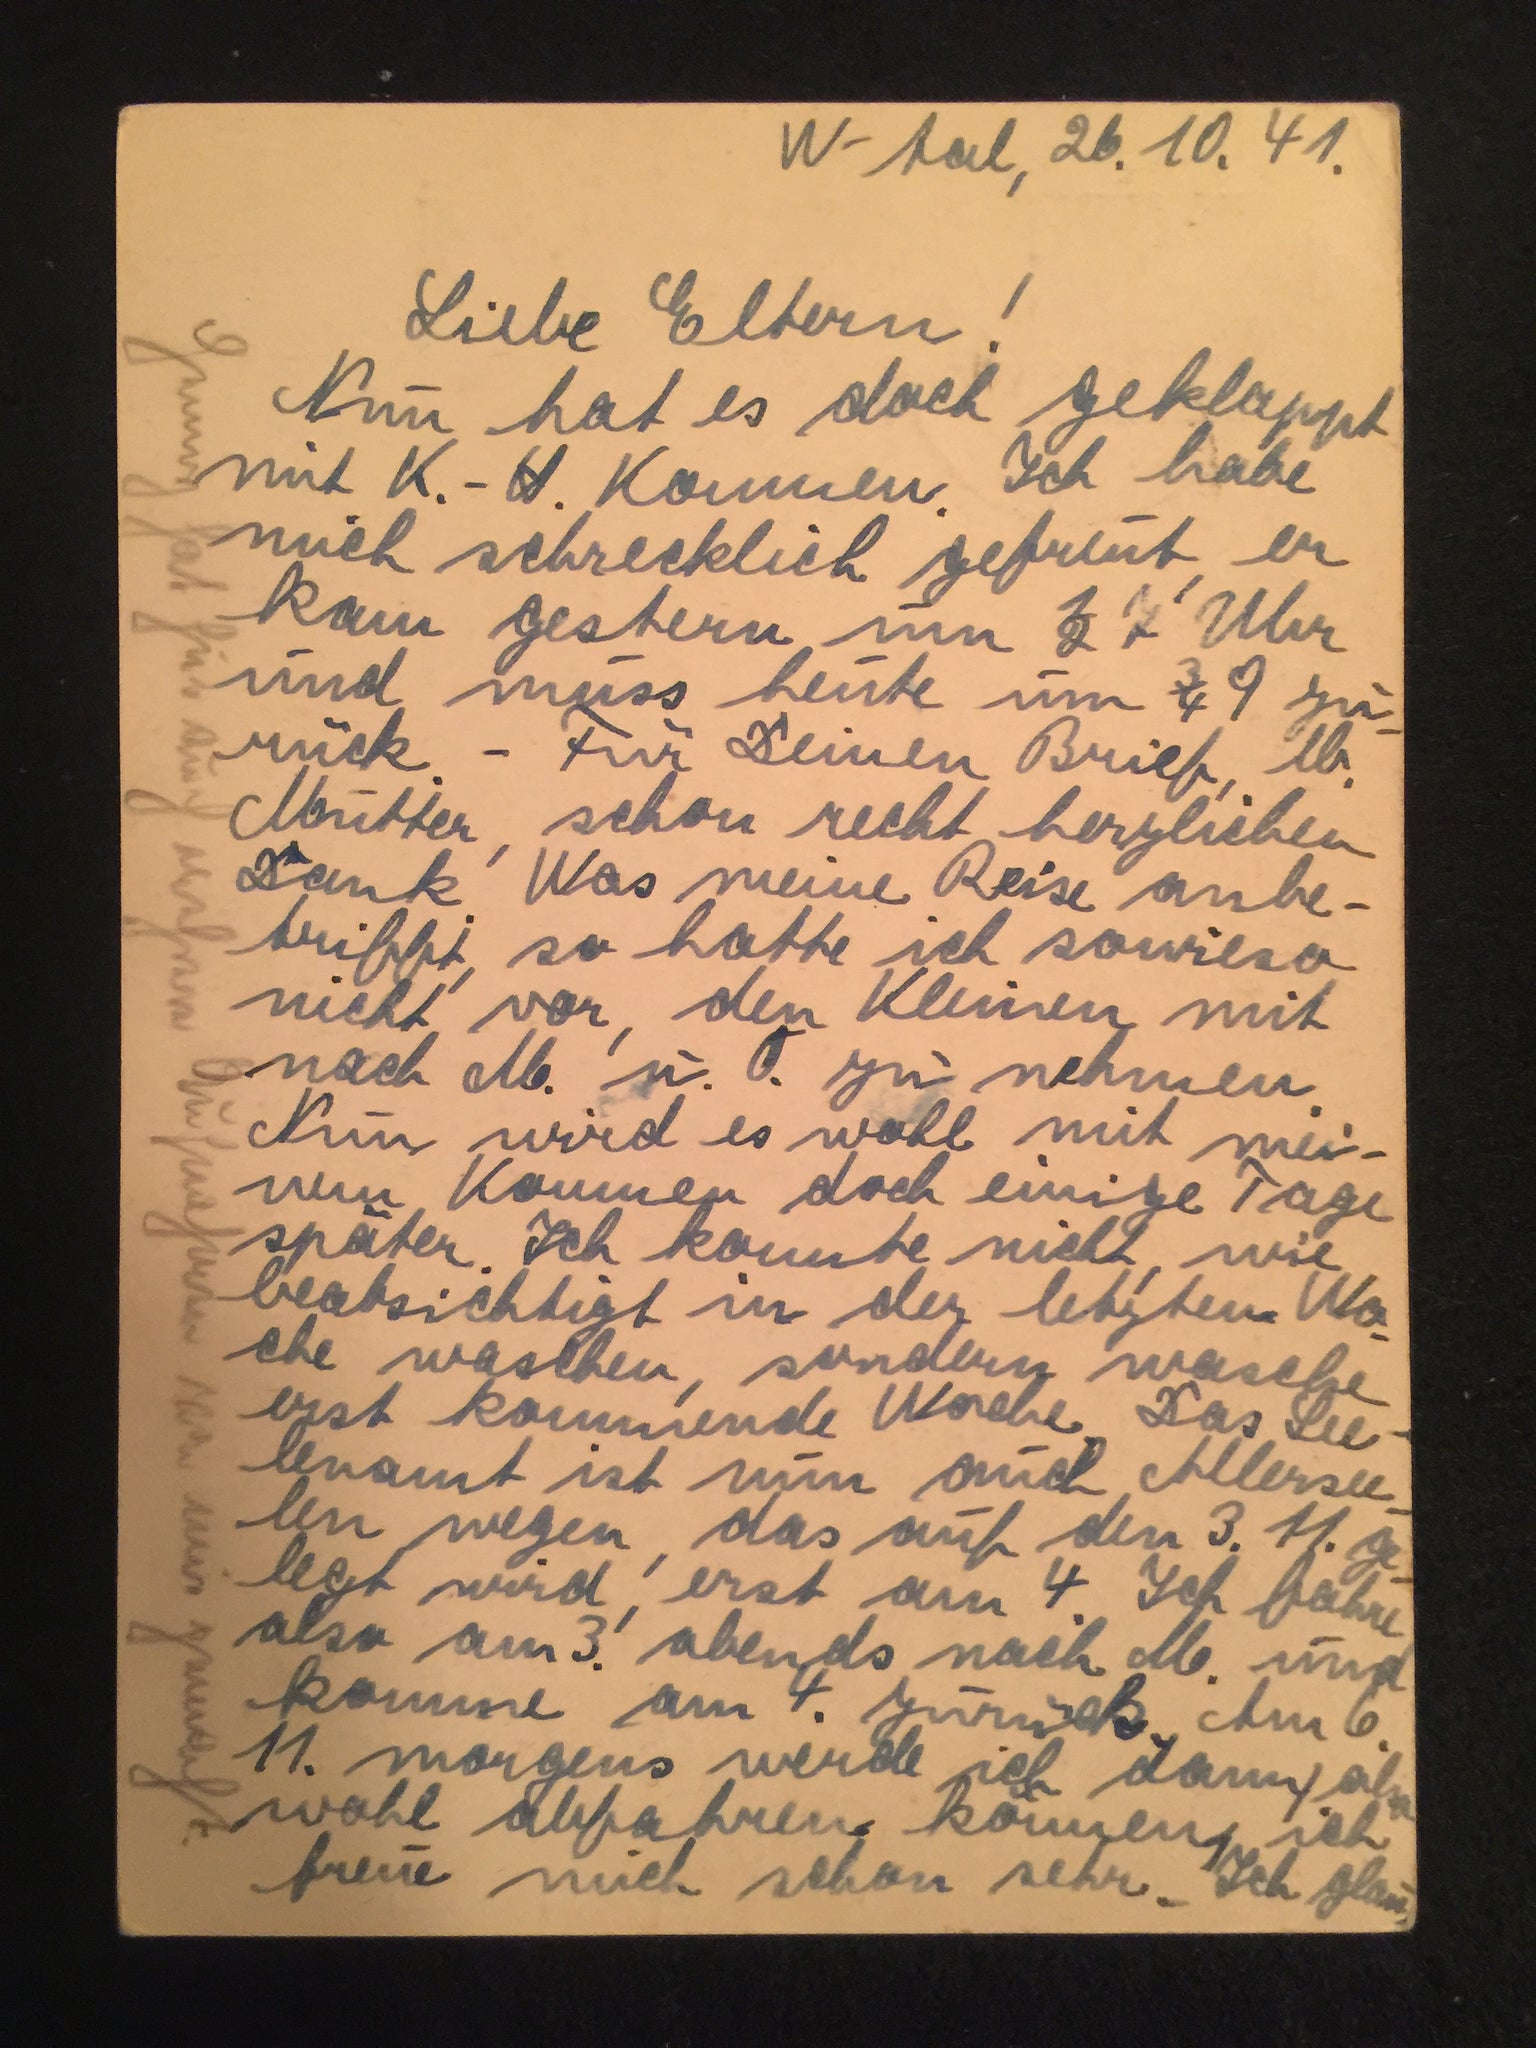 W-tal, 26. 10. 41.
Liebe Eltern!
Nun hat es doch geklappt
mit K.-H. Kommen. Ich habe
mich schrecklich gefreut, er
kam gestern um ½ 7 Uhr
und muss heute um ¾ 9 zu-
rück. - Für Deinen Brief, lb.
Mutter, schon recht herzlichen
Dank. Was meine Reise anbe-
trifft, so hatte ich sowieso
nicht vor, den Kleinen mit
nach M. u. O. zu nehmen.
Nun wird es wohl mit mei-
nem Kommen doch einige Tage
später. Ich konnte nicht, wie
beabsichtigt in der letzten Wo-
che waschen, sondern wasche
erst kommende Woche. Das See-
lenamt ist nun auch Allersee-
len wegen, das auf den 3. 11. ge-
legt wird, erst am 4. Ich fahre
also am 3. abends nach M. und
komme am 4. zurück. Am 6.
11. morgens werde ich dann also
wohl abfahren können, ich
freue mich schon sehr. - Ich glau-
hat für
von mir gemacht.